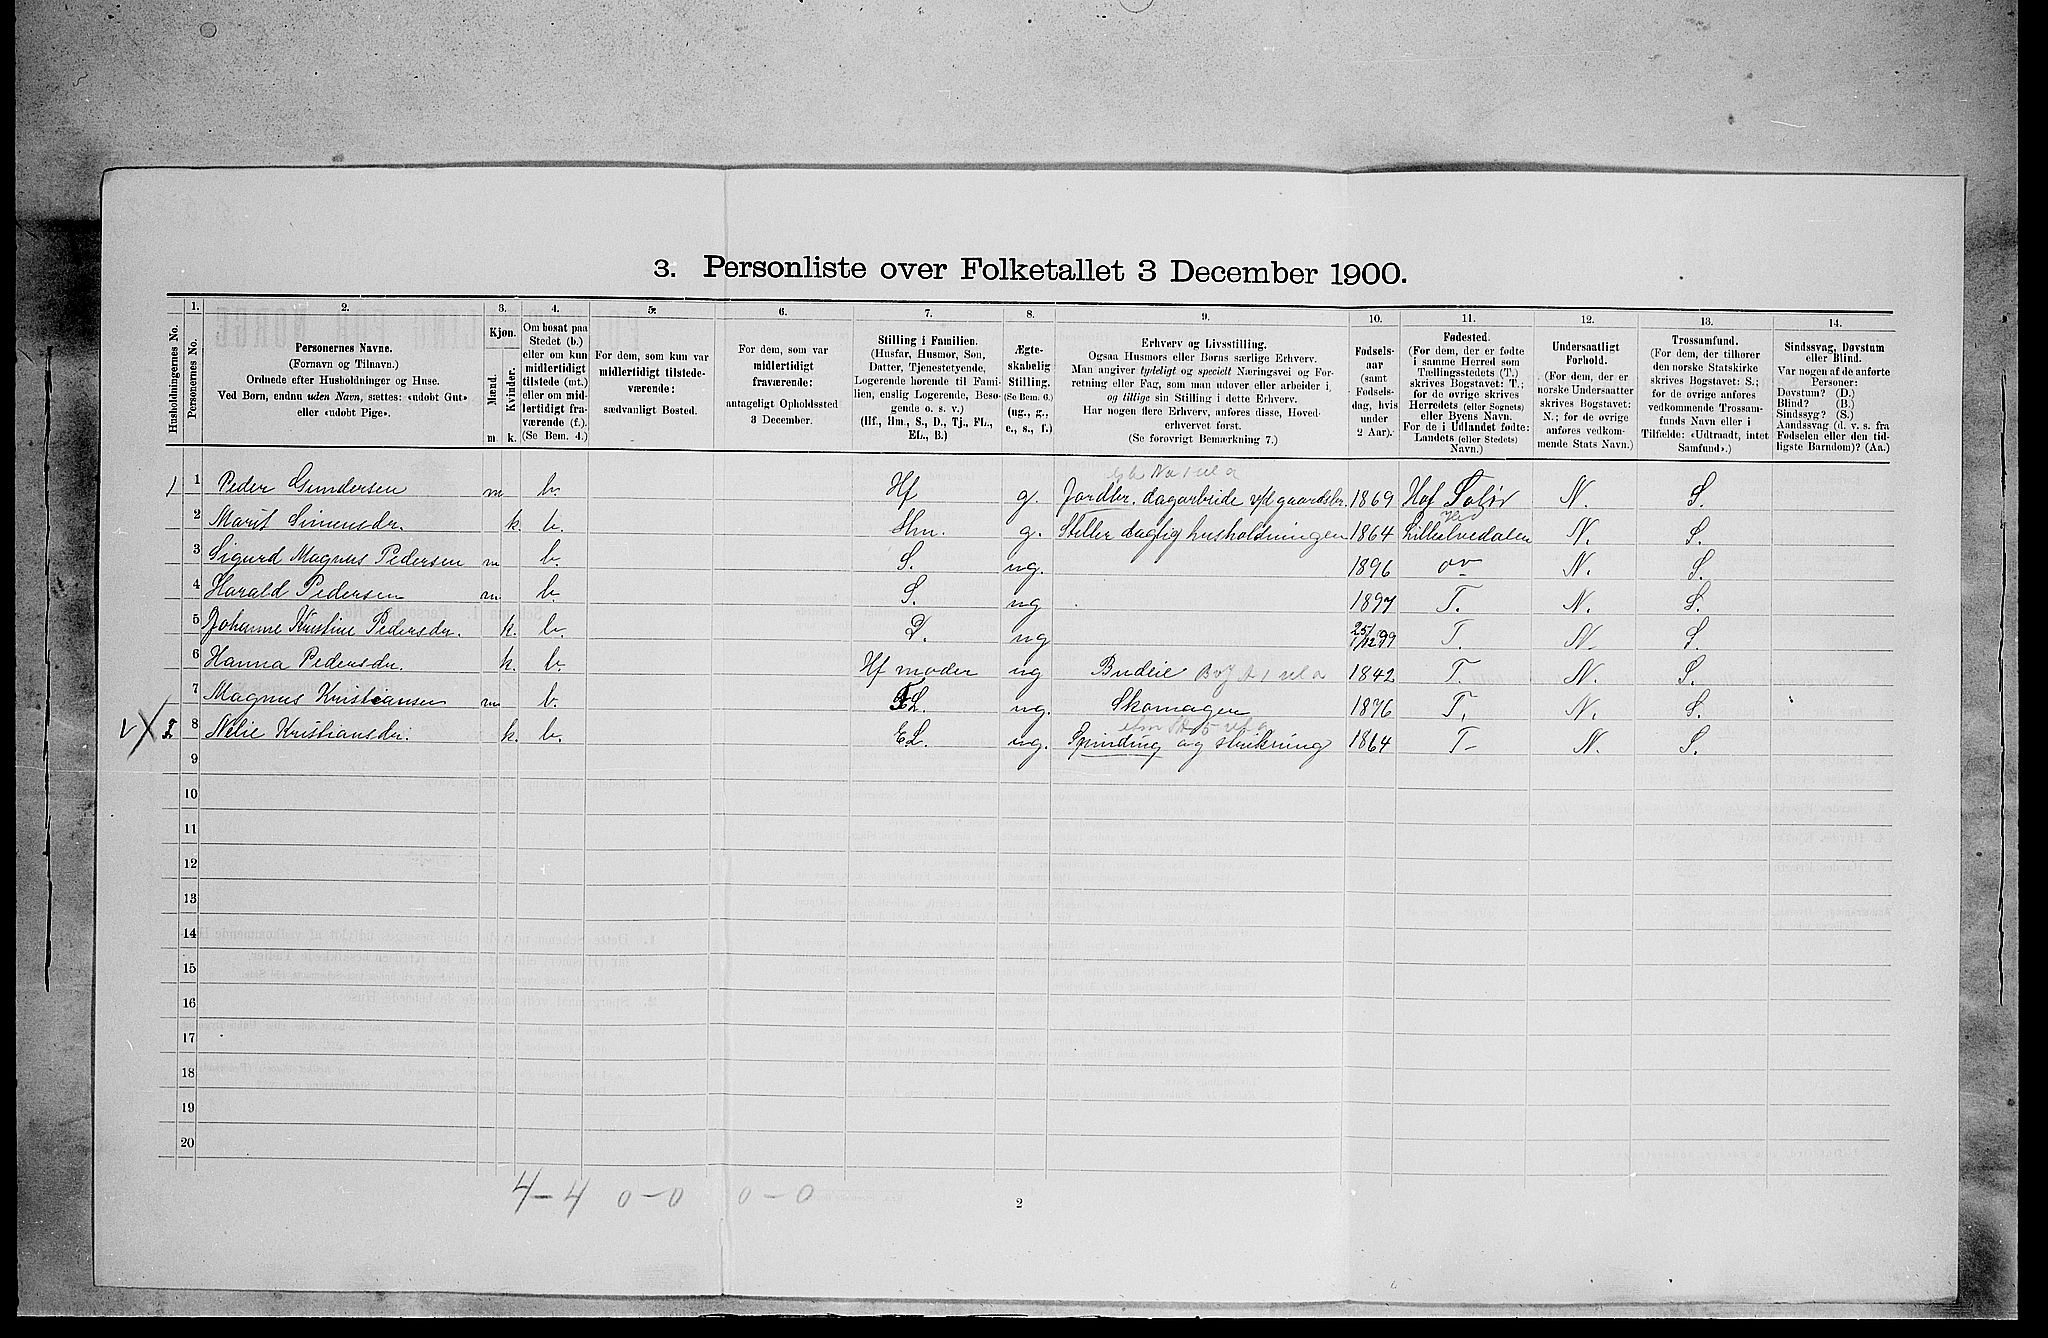 3. Personliste over Folketallet 3 December 1900.
Husholdningernes No.
1. Personernes No.
2. Personernes Navne. (Fornavn og Tilnavn.) Ordnede efter Husholdninger og Huse. Ved Børn, endnu uden Navn, sættes: «udøbt Gut» eller «udøbt Pige».
3. Kjøn. Mænd. m. Kvinder. k.
4. Om bosat paa Stedet (b.) eller om kun midlertidigt tilstede (mt.) eller om midlertidigt fraværende (f.). (Se Bem. 4.)
5. For dem, som kun var midlertidigt tilstedeværende: sædvanligt Bosted.
6. For dem, som var midlertidigt fraværende: antageligt Opholdssted 3 December.
7. Stilling i Familien. (Husfar, Husmor, Søn, Datter, Tjenestetyende, Logerende hørende til Familien, enslig Logerende, Besøgende o. s. v.) (Hf., Hm., S., D., Tj., FL., EL., B.)
8. Ægteskabelig Stilling. (Se Bem. 6.) (ug., g., e., s., f.)
9. Erhverv og Livsstilling. Ogsaa Husmors eller Børns særlige Erhverv. Man angiver tydeligt og specielt Næringsvei og Forretning eller Fag, som man udøver eller arbeider i, og tillige sin Stilling i dette Erhverv. Har nogen flere Erhverv, anføres disse, Hovederhvervet først. (Se forøvrigt Bemærkning 7.)
10. Fødselsaar (samt Fødselsdag, hvis under 2 Aar).
11. Fødested. (For dem, der er fødte i samme Herred som Tællingsstedets (T.) skrives Bogstavet: T.; for de øvrige skrives Herredets (eller Sognets) eller Byens Navn. For de i Udlandet fødte: Landets (eller Stedets) Navn.)
12. Undersaatligt Forhold. (For dem, der er norske Undersaatter skrives Bogstavet: N.; for de øvrige anføres vedkommende Stats Navn.)
13. Trossamfund. (For dem, der tilhører den norske Statskirke skrives Bogstavet: S.; for de øvrige anføres vedkommende Trossamfunds Navn eller i Tilfælde: «Udtraadt, intet Samfund».)
14. Sindssvag, Døvstum eller Blind. Var nogen af de anførte Personer: Døvstum? (D.) Blind? (B.) Sindssyg? (S.) Aandssvag (d. v. s. fra Fødselen eller den tidligste Barndom)? (Aa.)
1 1 Peder Gundersen m b. Hf g. Jordbr. dagarbeide gaardsbr. 1869 Hof Solør N. S.
2 Marit Simensdr. k. b. Hm. g. Steller daglig husholdningen 1864 Lilleelvedalen N. S.
3 Sigurd Magnus Pedersen m b. S. ug. 1896 N. S.
4 Harald Pedersen m. b. S. ug 1897 T. N. S.
5 Johanne Kristine Pedersdr. k. b. D. ug 25/12 99 T. N. S.
6 Hanna Pedersdr. k. b. Hf moder ug Budeie 1842 T. N. S.
7 Magnus Kristiansen m b. EL. ug. Skomager 1876 T. N. S.
2 8 Nelie Kristiansdr. k. b. EL. ug. Spinding og strikning 1864 T N. S.
9
10
11
12
13
14
15
16
17
18
19
20
4-4 0-0 0-0
2